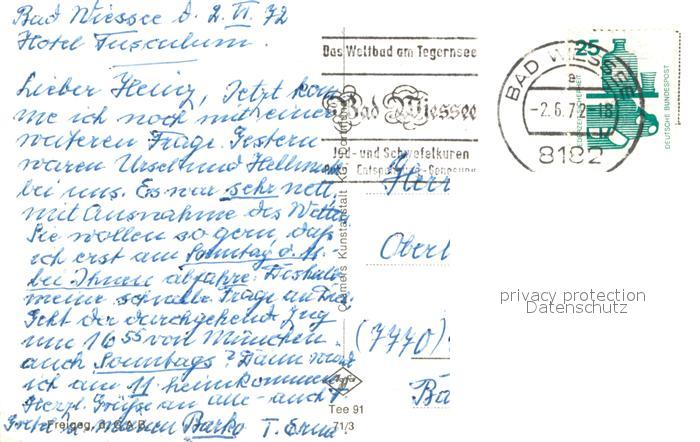 Bad Wiessee d. 2. VI. 72
Hotel Tusculum.
Lieber Heinz, Jetzt kom
me ich noch mit einer
weiteren Frage. Gestern
waren Ursel und Hellmut
bei uns. Es war sehr nett,
mit Ausnahme des Wetters
Sie wollen so gern, daß
ich erst am Sonntag d. 11.
bei Ihnen abfahre. Deshalb
meine schnelle Frage an Dich.
Geht der durchgehende Zug
um 16 55 von München
auch Sonntags? Dann würd
ich am 11. heimkommen
Herzl. Grüße an alle - auch
meinen Barko T. Erna
Das Weltbad am Tegernsee
Bad Wiessee
Jod- und Schwefelkuren
BAD WIESSEE
e
-2.6.72-18
8182
25
DEUTSCHE BUNDESPOST
Herr
Oberl
(7770)
Ba
Cramers Kunstanstalt KG, Dortmund
Agfa
Tee 91
71/3
Freigeg. d.
privacy protection
Datenschutz